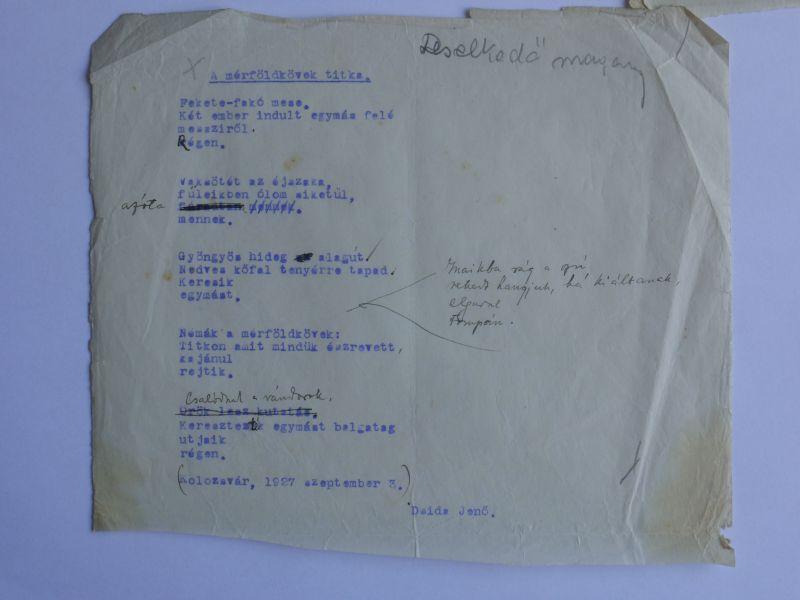 Leselkedő magány
A mérföldkövek titka.
Fekete-fakó mese.
Két ember indult egymás felé
messziről.
Régen.
Vaksötét az éjszaka,
füleikben ólom siketül,
azóta mennek.
mennek.
Gyöngyös hideg alagút.
Nedves kőfal tenyérre tapad.
Keresik
egymást.
Inaikba rág a
rekedt hangjuk, ha kiáltanak,
elgurul
tompán.
Némák a mérföldkövek:
Titkon amit mindük észrevett,
kajánul
rejtik.
Csalódnak a vándorok.
Örök lesz kutatás.
Keresztezték egymást balgatag
utjaik
régen.
(Kolozsvár, 1927 szeptember 3.)
Dsida Jenő.